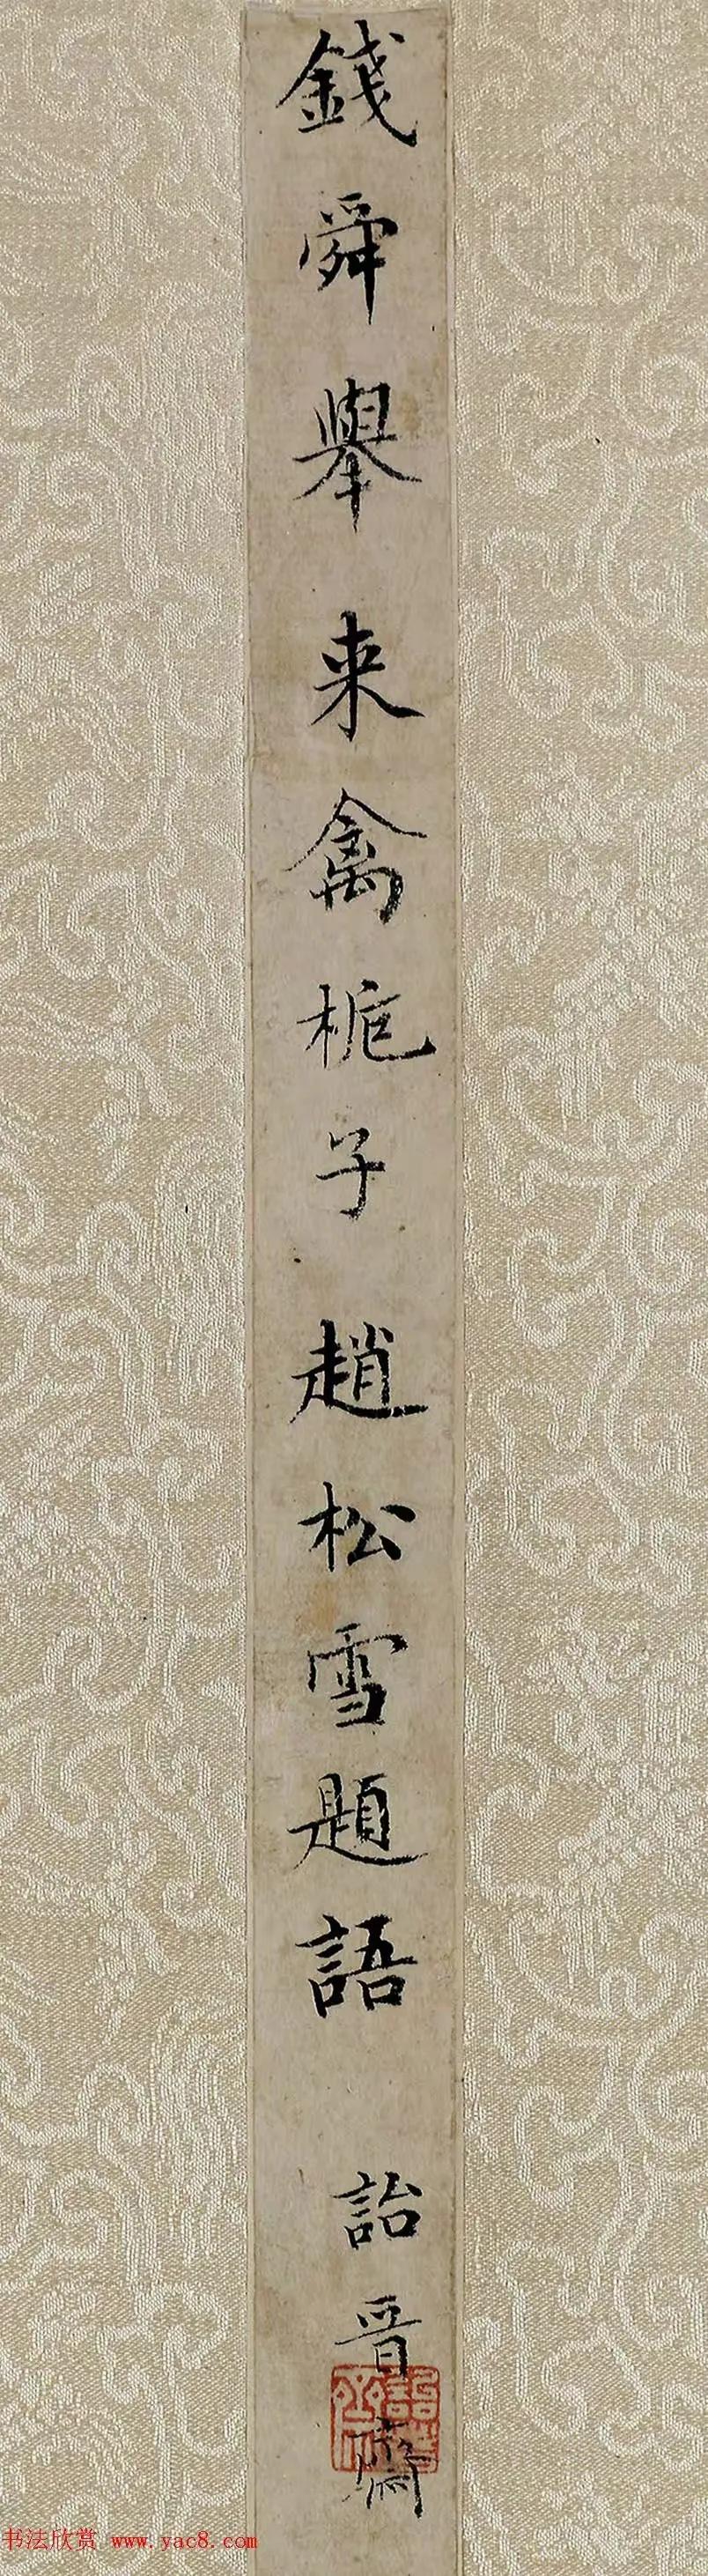 錢舜舉来禽梔子趙松雪題語
詒晋齋
詒晋齋
书法欣赏 www.yac8.com